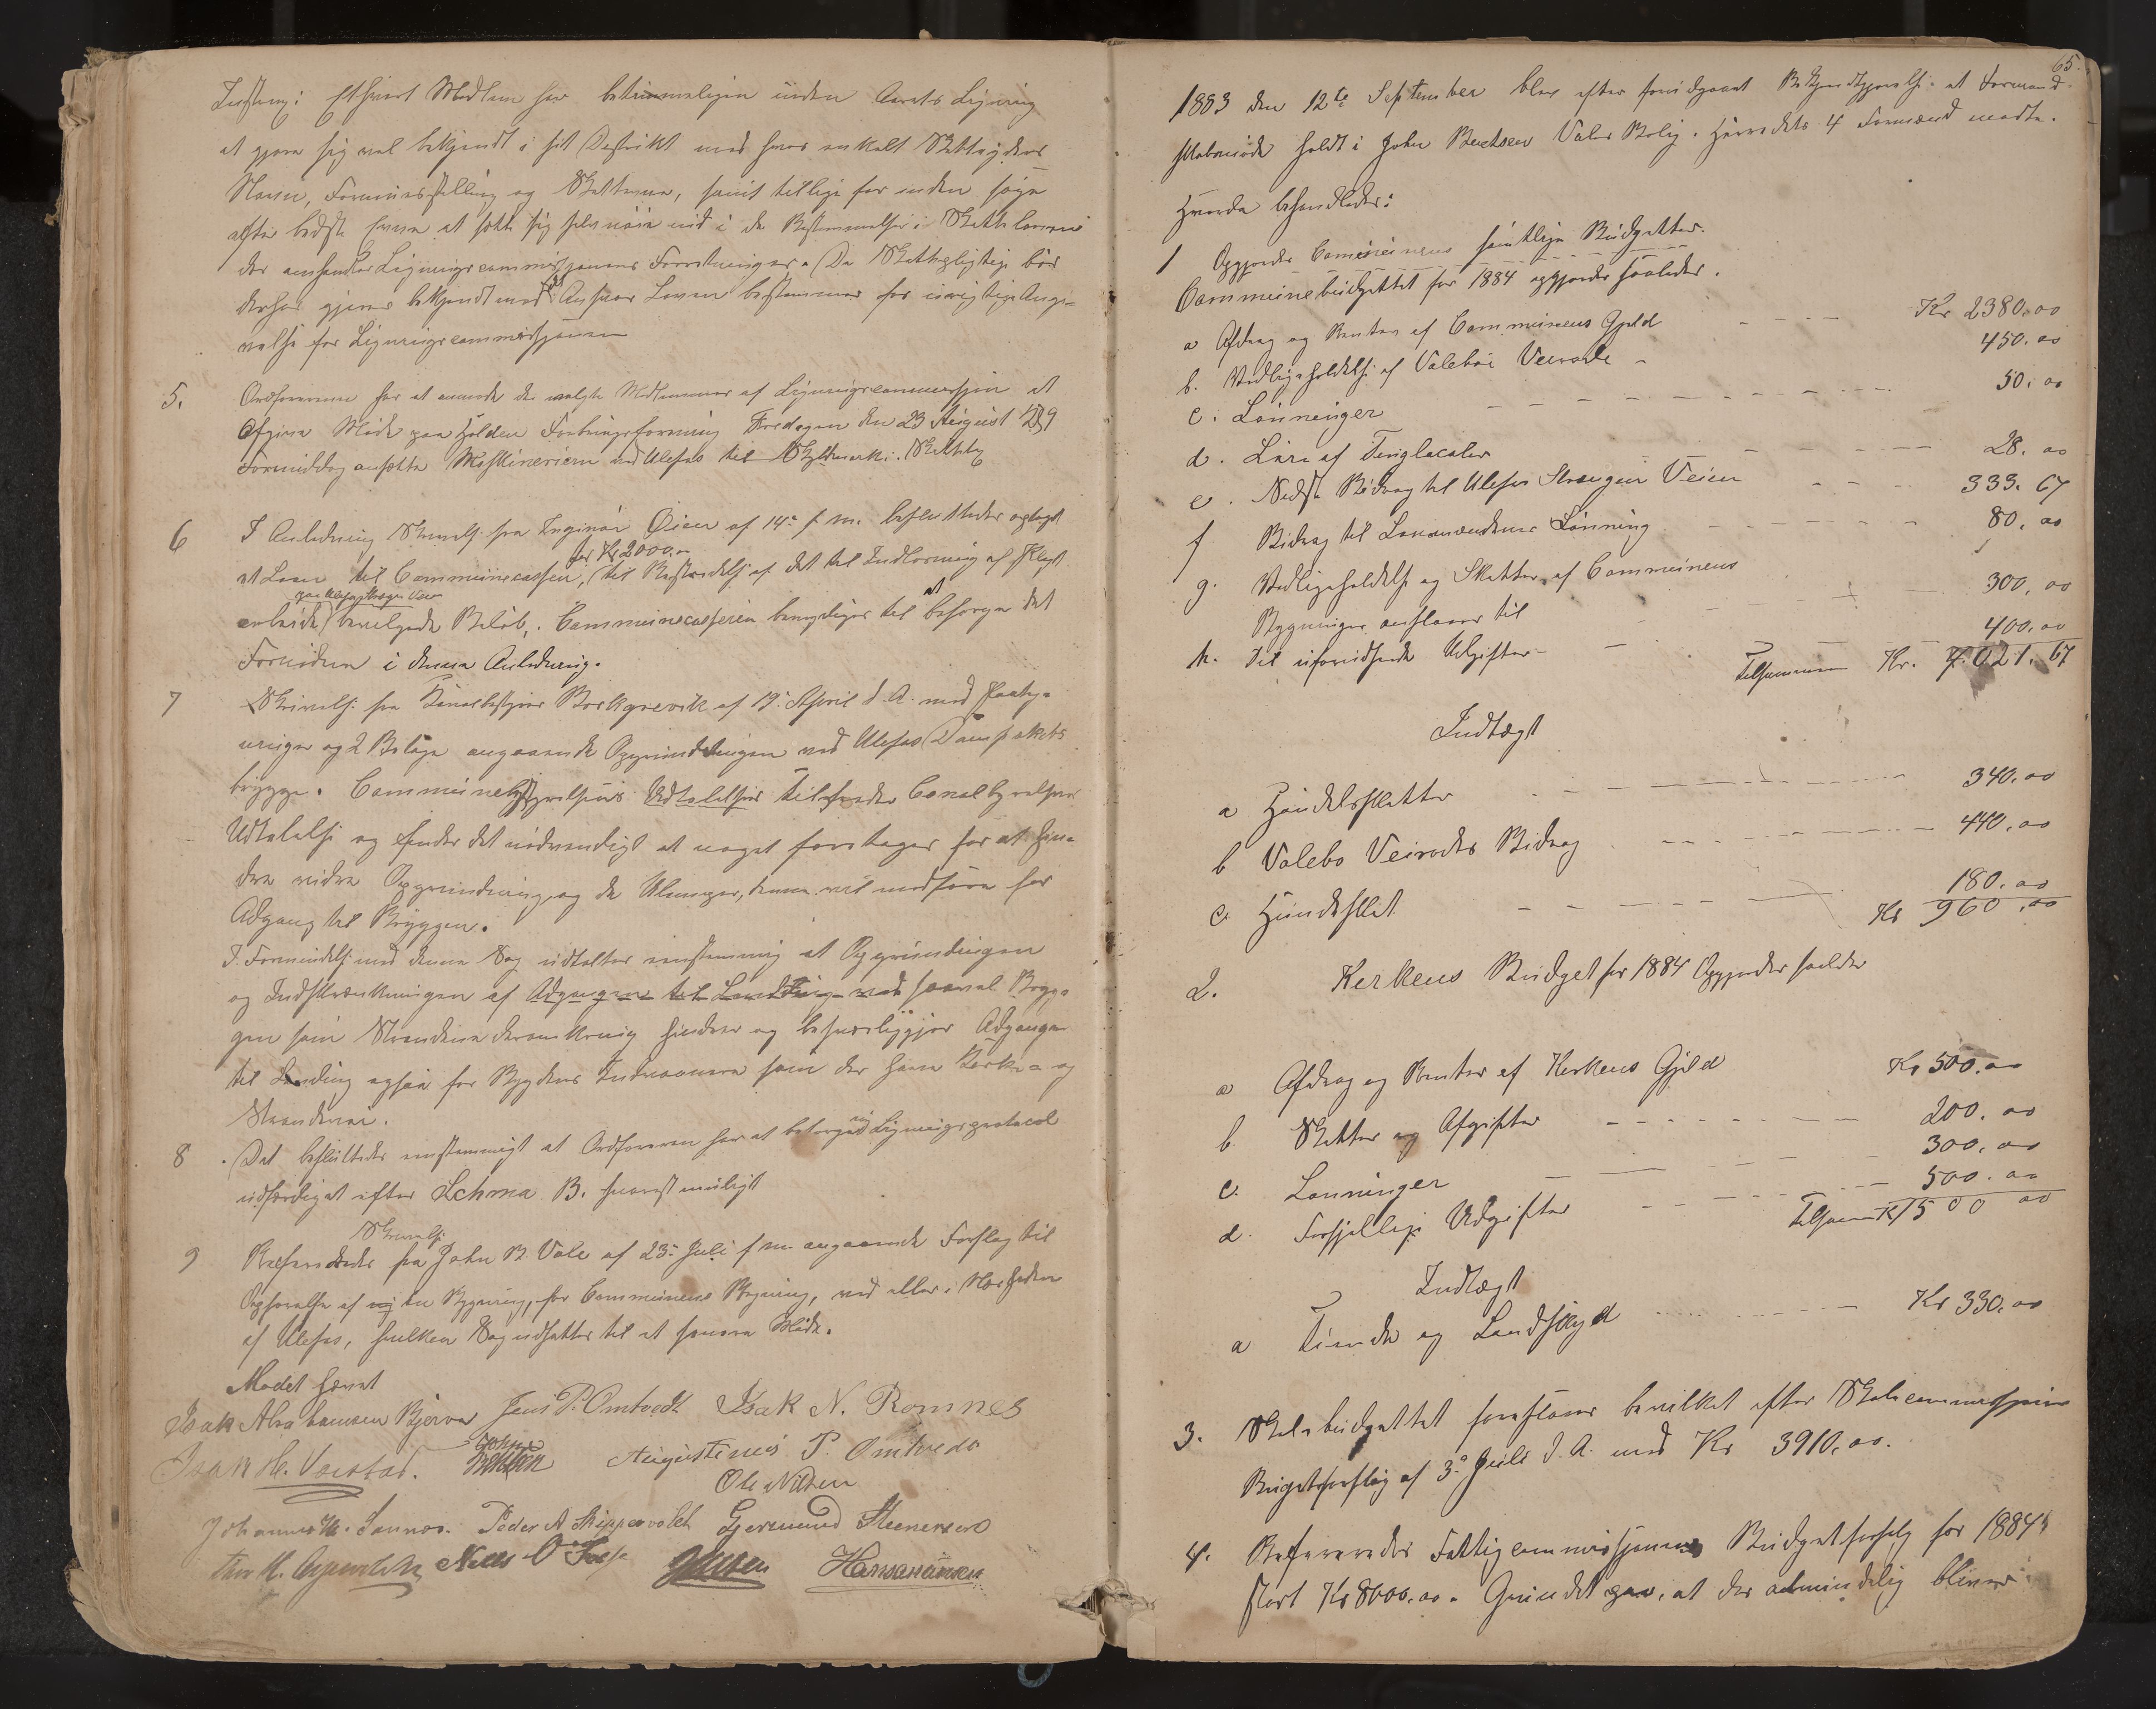 Ethvert Medlem har betimmeligen inden Aarets Ligning
at gjøre sig vel bekjendt i sit Distrikt med hver enkelt Skatteyders
Navn, Formuesstilling og samt tillige før inden søge
efter bedste Evne at sætte sig selv nøie ind i de Bestemmelser i Skatteloven
der omhandler Ligningscommissjonens Forretninger. De Skattepligtige bør
derhos gjøres bekjendt med det Ansvar Loven bestemmer for urigtige Angi=
velse for Ligningscommissjonen
5. Ordføreren har at anmode de valgte Medlemmer af Ligningscommissjon at
afgive Møde paa Holden den 23 August
Formiddag ansætte Maskinerierne ved Ulefos til
6 I Anledning Skrivelse fra Ingeniør Øien af 14de f. m. besluttedes optaget
for Kr 2000.00
et Laan til Communecassen, (til Bestridelse af det til
paa Ulefos Veien
arbeide) bevilgede Beløb. Communecassereren bemyndiges til at besørge det
Fornødne i denne Anledning.
7 Skrivelse fra Kanalbestyrer Borchgrevink af 19. April d. A. med Paateg=
ninger og 2 Bilage angaaende Opgrundingen ved Ulefos Dampskibs
brygge. Communebestyrelsens Udtalelse tiltræder Canalstyrelsens
Udtalelse og finder det nødvendigt at noget foretages for at hin=
dre videre Opgrunding, og de Ulemper, denne vil medføre for
Adgang til Bryggen.
I Forbindelse med denne Sag udtaltes enstemmig at Opgrundingen
og Indskrænkningen af Adgangen til Landing ved saavel Bryg=
gen som Strandene deromkring hindrer og besværliggjør Adgangen
til Landing ogsaa for Bygdens Indvaanere som der have Kirke= og
Strandvei.
8 . Det besluttedes enstemmigt at Ordføreren har at besørge ny Ligningsprotocol
udfærdiget efter Schma B. snarest muligt
Skrivelse
9 Refereredes fra John B. Vale af 23de Juli f. m. angaaende Forslag til
Opførelse af en Bygning, for Communens Regning, ved eller i Nærheden
af Ulefos, hvilken Sag udsattes til et senere Møde.
Mødet hævet
Isak Abrahamsen Bjerva Jens P. Omtvedt Isak N. Romnes
Isak H. Vaistad. John Augustinus P. Omtvedt
Ole Nilsen
Johannes H. Sannes. Peder A Skippervolt Gjermund Steenersen
Nills O Hans Hansen
65.
1883 den 12te September blev efter foregaaet Bekjendtgjørelse et Formand=
skabsmøde holdt i John Bentsen Vales Bolig. Herredets 4 Formænd mødte.
Hvorda behandledes:
1 Opgjordes Communens samtlige Budgetter.
Communebudgettet for 1884 opgjordes saaledes.
a Afdrag og Renter af Communens Gjeld - - - - Kr 2380.00
b. Vedligeholdelse af Valebø Veirode - 450.00
c. Lønninger - - - - - - - - 50.00
d. Leie af Tinglocaler - - - - - 28.00
e. Bidrag til Ulefos Strengen Veien - - - - 333.67
f Bidrag til Lensmændenes Lønning - - - - 80.00
g. Vedligeholdelse og Skatter af Communens
Bygninger ansloges til - - - - 300.00
h. Til uforudseede Udgifter - - - 400.00
Tilsammen Kr. 4.021.67
Indtægt
a Handelsskatter - - - - - 340.00
b Valebø Veirodes Bidrag - - - - 440.00
c. Hundeskat - - - - 180.00
Kr 960.00
2. Kerkens Budget for 1884 Opgjordes saaledes
a Afdrag og Renter af Kerkens Gjeld Kr 500.00
b. Skatter og Afgifter - - - - - 200.00
c. Lønninger - - - - 300.00
d. Forskjellige Udgifter - - - - - 500.00
Tilsammen Kr 1500 00
Indtægt
a Tiende og Landskyld - - - - - Kr 330.00
3. Skolebudgettet foresloges bevilket efter Skolecommissjonens
Budgetforslag af 3de Juli d. A. med Kr 3910.00.
4. Refereredes Fattigcommissjonens Budgetforslag for 1884
stort Kr 8000.00. Grundet paa, at der almindelig bliver